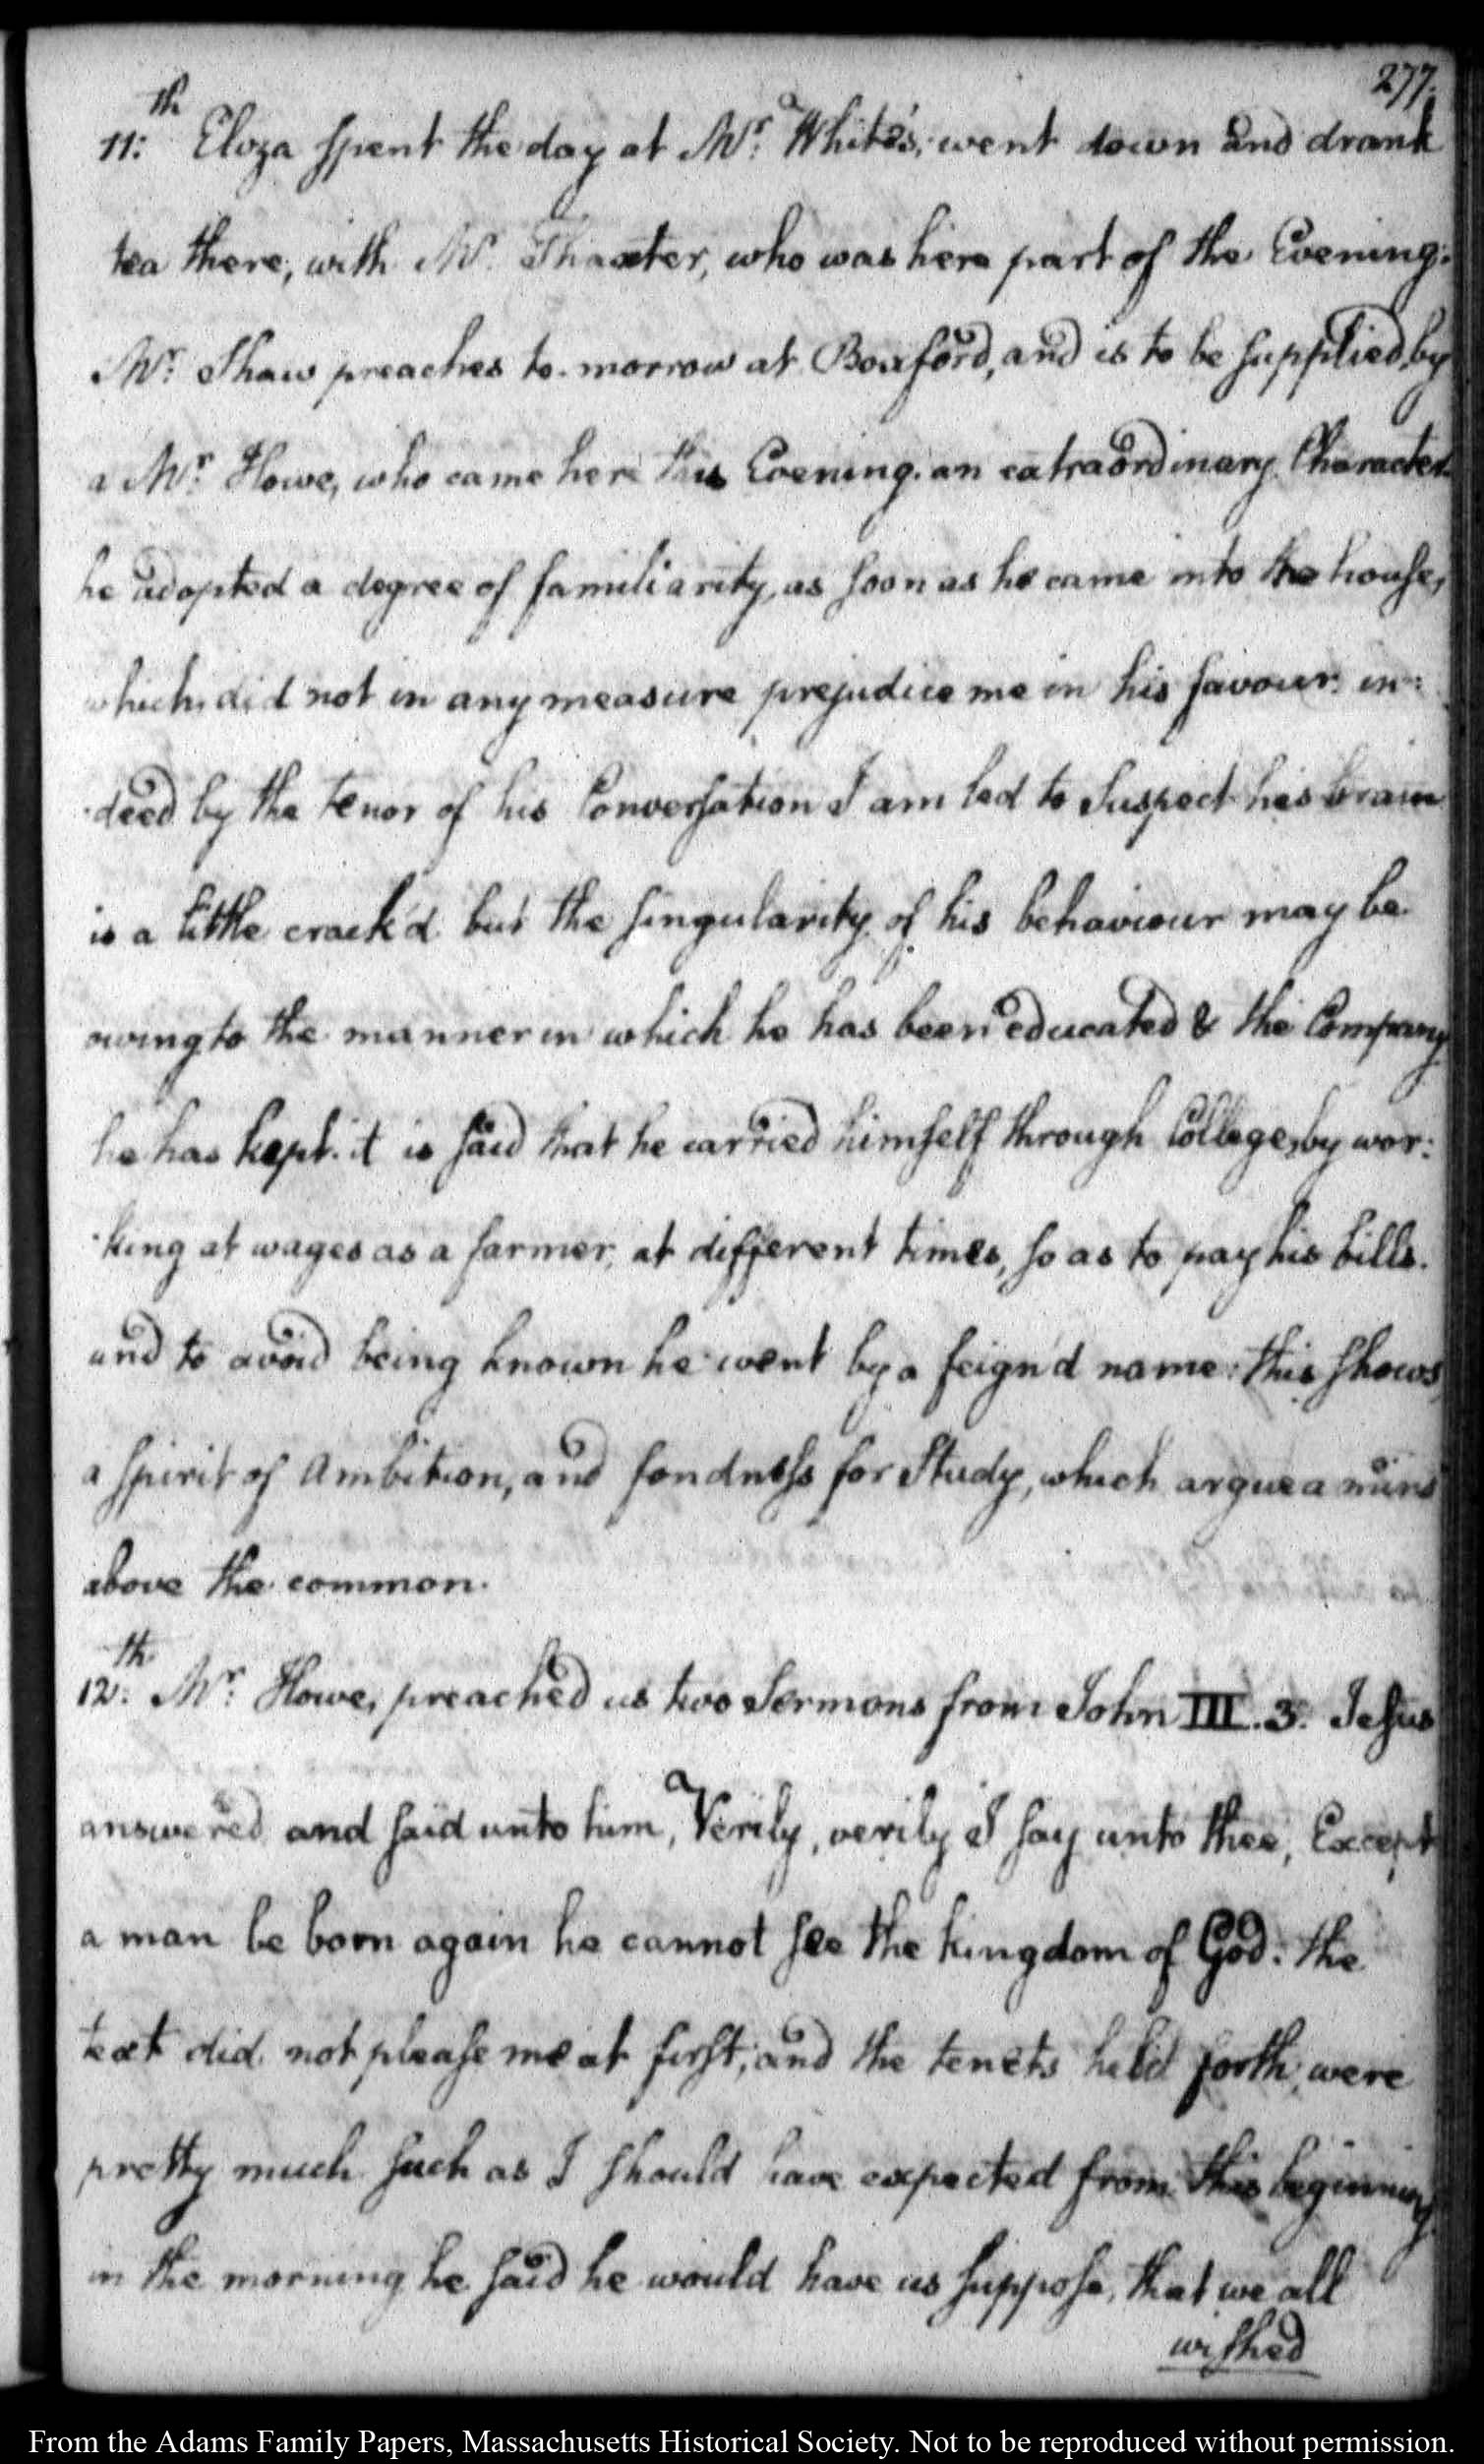 277.
11:th Eliza spent the day at Mr: White's; went down and drank
tea there, with Mr. Thaxter, who was here part of the Evening.
Mr: Shaw preaches to-morrow at Boxford, and is to be supplied by
a Mr: Howe, who came here this Evening. an extraordinary Character.
he adopted a degree of familiarity, as soon as he came into the house,
which did not in any measure prejudice me in his favour. in:
:deed by the tenor of his Conversation I am led to Suspect his brain
is a little crack'd but the singularity of his behaviour may be
owing to the manner in which he has been educated & the Company
he has kept. it is said that he carried himself through College, by wor:
:king at wages as a farmer, at different times, so as to pay his bills.
and to avoid being known he went by a feign'd name: this shows
a spirit of Ambition, and fondness for Study, which argue a mind
above the common.
12:th Mr: Howe, preached us two Sermons from John III. 3. Jesus
answered and said unto him, Verily, verily I say unto thee, Except
a man be born again he cannot see the kingdom of God. the
text did not please me at first; and the tenets held forth, were
pretty much such as I should have expected from this beginning.
in the morning he said he would have us suppose, that we all
wished
From the Adams Family Papers, Massachusetts Historical Society. Not to be reproduced without permission.